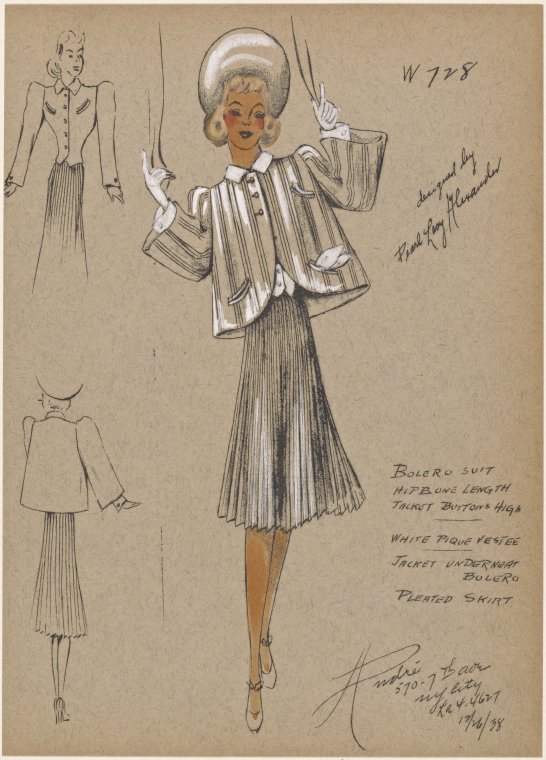 W 728
designed by
Pearl Levy Alexander
BOLERO SUIT
HIPBONE LENGTH
JACKET BUTTONS HIGH
WHITE PIQUE VESTEE
JACKET UNDERNEAT
BOLERO
PLEATED SKIRT
André
570-7th Ave
NY City
La 4-4627
12/26/38